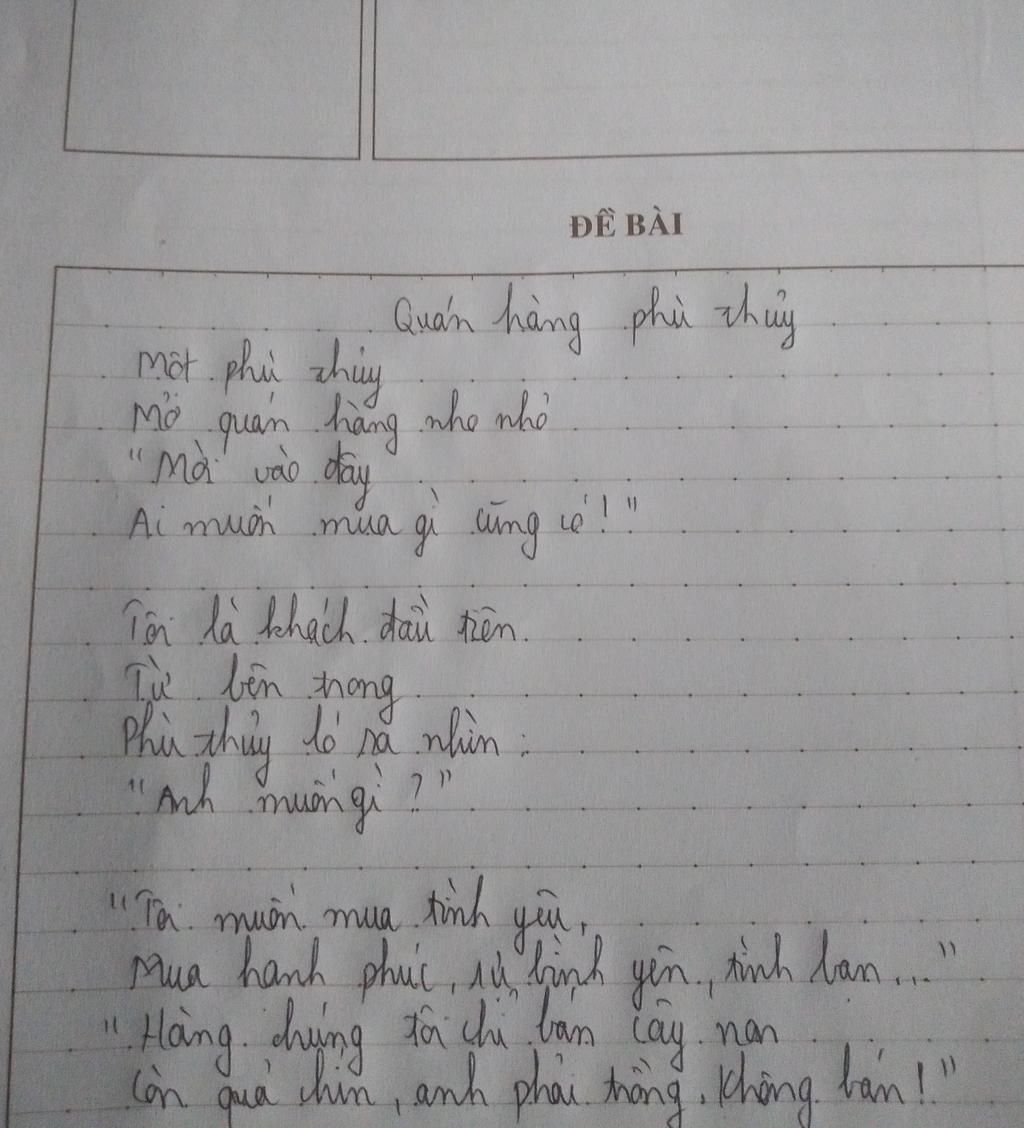 ĐỀ BÀI
Quán hàng phù thủy
Một phù thủy
Mở quán hàng nho nhỏ
"Mời vào đây
Ai muốn mua gì cũng có!"
Tôi là khách đầu tiên.
Từ bên trong
Phù thủy ló ra nhìn:
"Anh muốn gì?"
"Tôi muốn mua tình yêu,
Mua hạnh phúc, sự bình yên, tình bạn..."
"Hàng chúng tôi chỉ bán cây non
Còn quả chín, anh phải trồng. Không bán!"